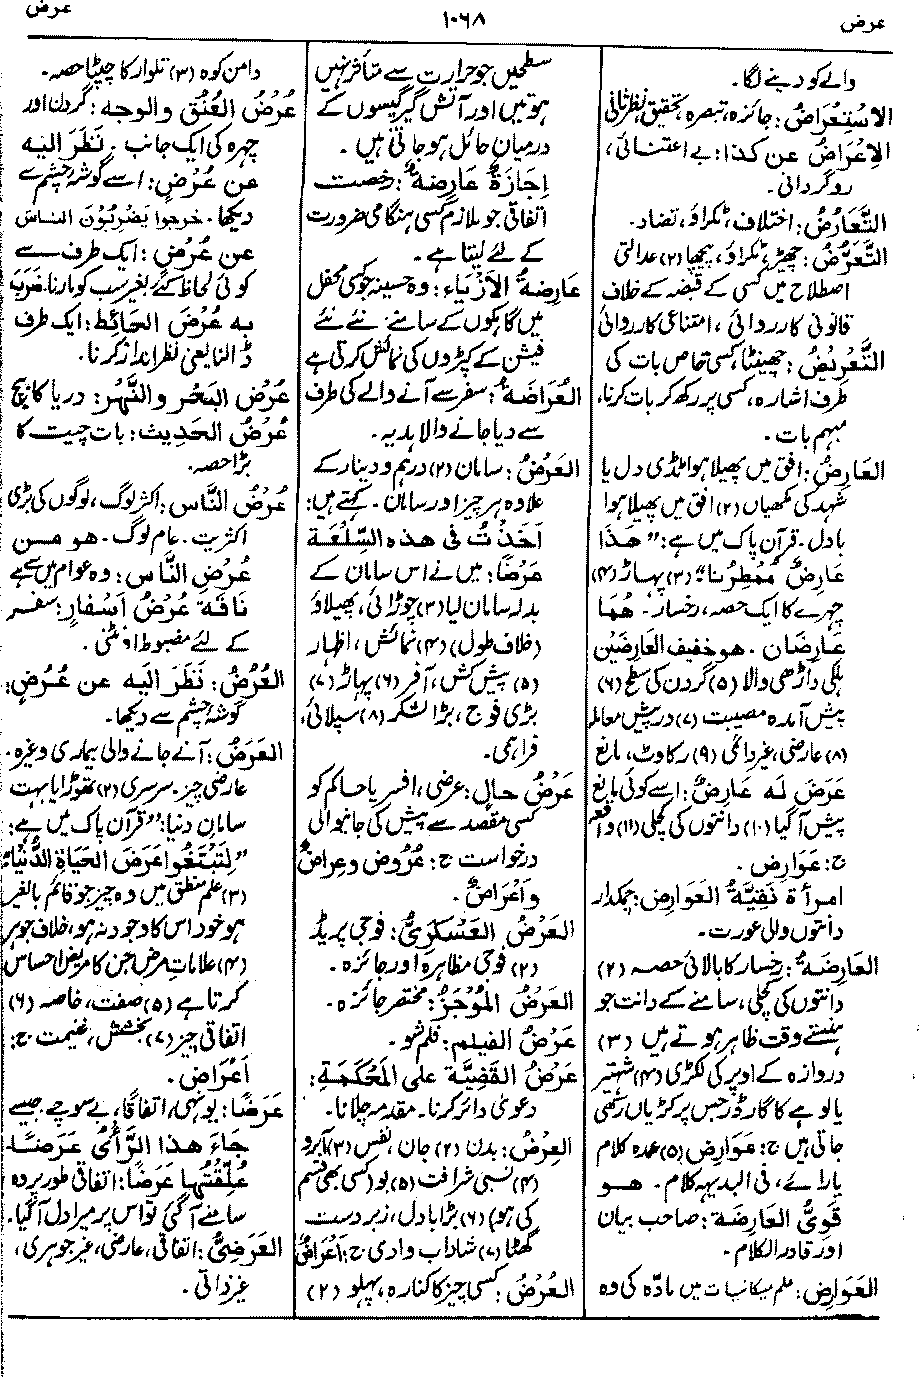 عرض
۱۰۶۸
عرض
والے کو دینے لگا۔
الاسْتِعْرَاضُ: جائزہ، تبصرہ، تحقیق، نظر ثانی
الإعْرَاضُ عن کذا: بے اعتنائی،
روگردانی۔
التَّعَارُضُ: اختلاف، ٹکراؤ، تضاد۔
التَّعَرُّضُ: چھیڑ، ٹکراؤ، پیچھا (۲) عدالتی
اصطلاح میں کسی کے قبضہ کے خلاف
قانونی کارروائی، امتناعی کارروائی
التَّعْرِيْضُ: چھینٹا، کسی خاص بات کی
طرف اشارہ، کسی پر رکھ کر بات کرنا،
مبہم بات۔
العَارِضُ: افق میں پھیلا ہوا ٹڈی دل یا
شہد کی مکھیاں (۲) افق میں پھیلا ہوا
بادل۔ قرآن پاک میں ہے: "هَذَا
عَارِضٌ مُّمْطِرُنا" (۳) پہاڑ (۴)
چہرے کا ایک حصہ، رخسار۔ هُمَا
عَارِضَان۔ هو خفيف العَارِضَيْن
ہلکی داڑھی والا (۵) گردن کی سطح (۶)
پیش آمدہ مصیبت (۷) درپیش معاملہ
(۸) عارضی، غیر دائمی (۹) رکاوٹ، مانع
عَرَضَ لَه عَارِضٌ: اسے کوئی مانع
پیش آگیا (۱۰) دانتوں کی کچلی (۱۱) واقعہ
ج: عَوَارِض۔
امرأة نَقِيَّةُ العَوَارِض: چمکدار
دانتوں والی عورت۔
العَارِضَةُ: رخسار کا بالائی حصہ (۲)
دانتوں کی کچلی، سامنے کے دانت جو
ہنستے وقت ظاہر ہوتے ہیں (۳)
دروازہ کے اوپر کی لکڑی (۴) شہتیر
یا لوہے کا گارڈر جس پر کڑیاں رکھی
جاتی ہیں ج: عَوَارِض (۵) عمدہ کلام
یا رائے، فی البدیہہ کلام۔ هو
قَوِيُّ العَارِضَة: صاحب بیان
اور قادر الکلام۔
العَوَارِض: علم میکانیات میں مادّہ کی وہ
سطحیں جو حرارت سے متأثر نہیں
ہوتیں اور آتش گیر گیسوں کے
درمیان حائل ہو جاتی ہیں۔
إجَازَةٌ عَارِضَةٌ: رخصت
اتفاقی جو ملازم کسی ہنگامی ضرورت
کے لئے لیتا ہے۔
عَارِضَةُ الأزْيَاء: وہ حسینہ جو کسی محفل
میں گاہکوں کے سامنے نئے نئے
فیشن کے کپڑوں کی نمائش کرتی ہے
العُرَاضَةُ: سفر سے آنے والے کی طرف
سے دیا جانے والا ہدیہ۔
العَرْضُ: سامان (۲) درہم و دینار کے
علاوہ ہر چیز اور سامان۔ کہتے ہیں:
أخَذْتُ فى هذه السِّلْعَة
عَرْضًا: میں نے اس سامان کے
بدلہ سامان لیا (۳) چوڑائی، پھیلاؤ
(خلاف طول) (۴) نمائش، اظہار
(۵) پیش کش، آفر (۶) پہاڑ (۷)
بڑی فوج، بڑا لشکر (۸) سپلائی،
فراہمی۔
عَرْضُ حالٍ: عرضی، افسر یا حاکم کو
کسی مقصد سے پیش کی جانیوالی
درخواست ج: عُرُوض و عِراضٌ
و أعْرَاضٌ۔
العَرْضُ العَسْكَرِيُّ: فوجی پریڈ
(۲) فوجی مظاہرہ اور جائزہ۔
العَرْضُ المُوْجَزُ: مختصر جائزہ۔
عَرْضُ الفيلم: فلم شو۔
عَرْضُ القَضِيَّة على المُحْكَمَةِ:
دعویٰ دائر کرنا۔ مقدمہ چلانا۔
العِرْضُ: بدن (۲) جان، نفس (۳) آبرو
(۴) نسبی شرافت (۵) بو (کسی بھی قسم
کی ہو) (۶) بڑا بادل، زبردست
گھٹا (۷) شاداب وادی ج: أعْرَاضٌ
العُرْضُ: کسی چیز کا کنارہ، پہلو (۲)
دامن کوہ (۳) تلوار کا چپٹا حصہ۔
عُرْضُ العُنُق والوجه: گردن اور
چہرہ کی ایک جانب۔ نَظَرَ اليه
عن عُرْضٍ: اسے گوشۂ چشم سے
دیکھا۔ خرجوا يَضْرِبُوْنَ الناسَ
عن عُرْضٍ: ایک طرف سے
کوئی لحاظ کئے بغیر سب کو مارنا۔ ضَرَبَ
به عُرْضَ الحَائِط: ایک طرف
ڈالنا یعنی نظر انداز کرنا۔
عُرْضُ البَحْر والنَّهْر: دریا کا بیچ
عُرْضُ الحَدِيث: بات چیت کا
بڑا حصہ۔
عُرْضُ النَّاس: اکثر لوگ، لوگوں کی بڑی
اکثریت۔ عام لوگ۔ هو من
عُرْضِ النَّاس: وہ عوام میں سے ہے
نَاقَة عُرْضُ أسْفَارٍ: سفر
کے لئے مضبوط اونٹنی۔
العُرُضُ: نَظَرَ اليه عن عُرُضٍ:
گوشۂ چشم سے دیکھا۔
العَرَضُ: آنے جانے والی بیماری وغیرہ۔
عارضی چیز۔ سرسری (۲) تھوڑا یا بہت
سامان دنیا: قرآن پاک میں ہے:
"لِتَبْتَغُوا عَرَضَ الحَيَاةِ الدُّنْيَا"
(۳) علم منطق میں وہ چیز جو قائم بالغیر
ہو خود اس کا وجود نہ ہو، خلاف جوہر
(۴) علاماتِ مرض جن کا مریض احساس
کرتا ہے (۵) صفت، خاصہ (۶)
اتفاقی چیز (۷) بخشش، غنیمت ج:
أعْرَاض۔
عَرَضًا: یونہی، اتفاقاً، بے سوچے جیسے
جَاءَ هذا الرَّأىُ عَرَضًا
عُلِّقْتُها عَرَضًا: اتفاقی طور پر وہ
سامنے آگئی تو اس پر میرا دل آگیا۔
العَرَضِيُّ: اتفاقی، عارضی، غیر جوہری،
غیر ذاتی۔